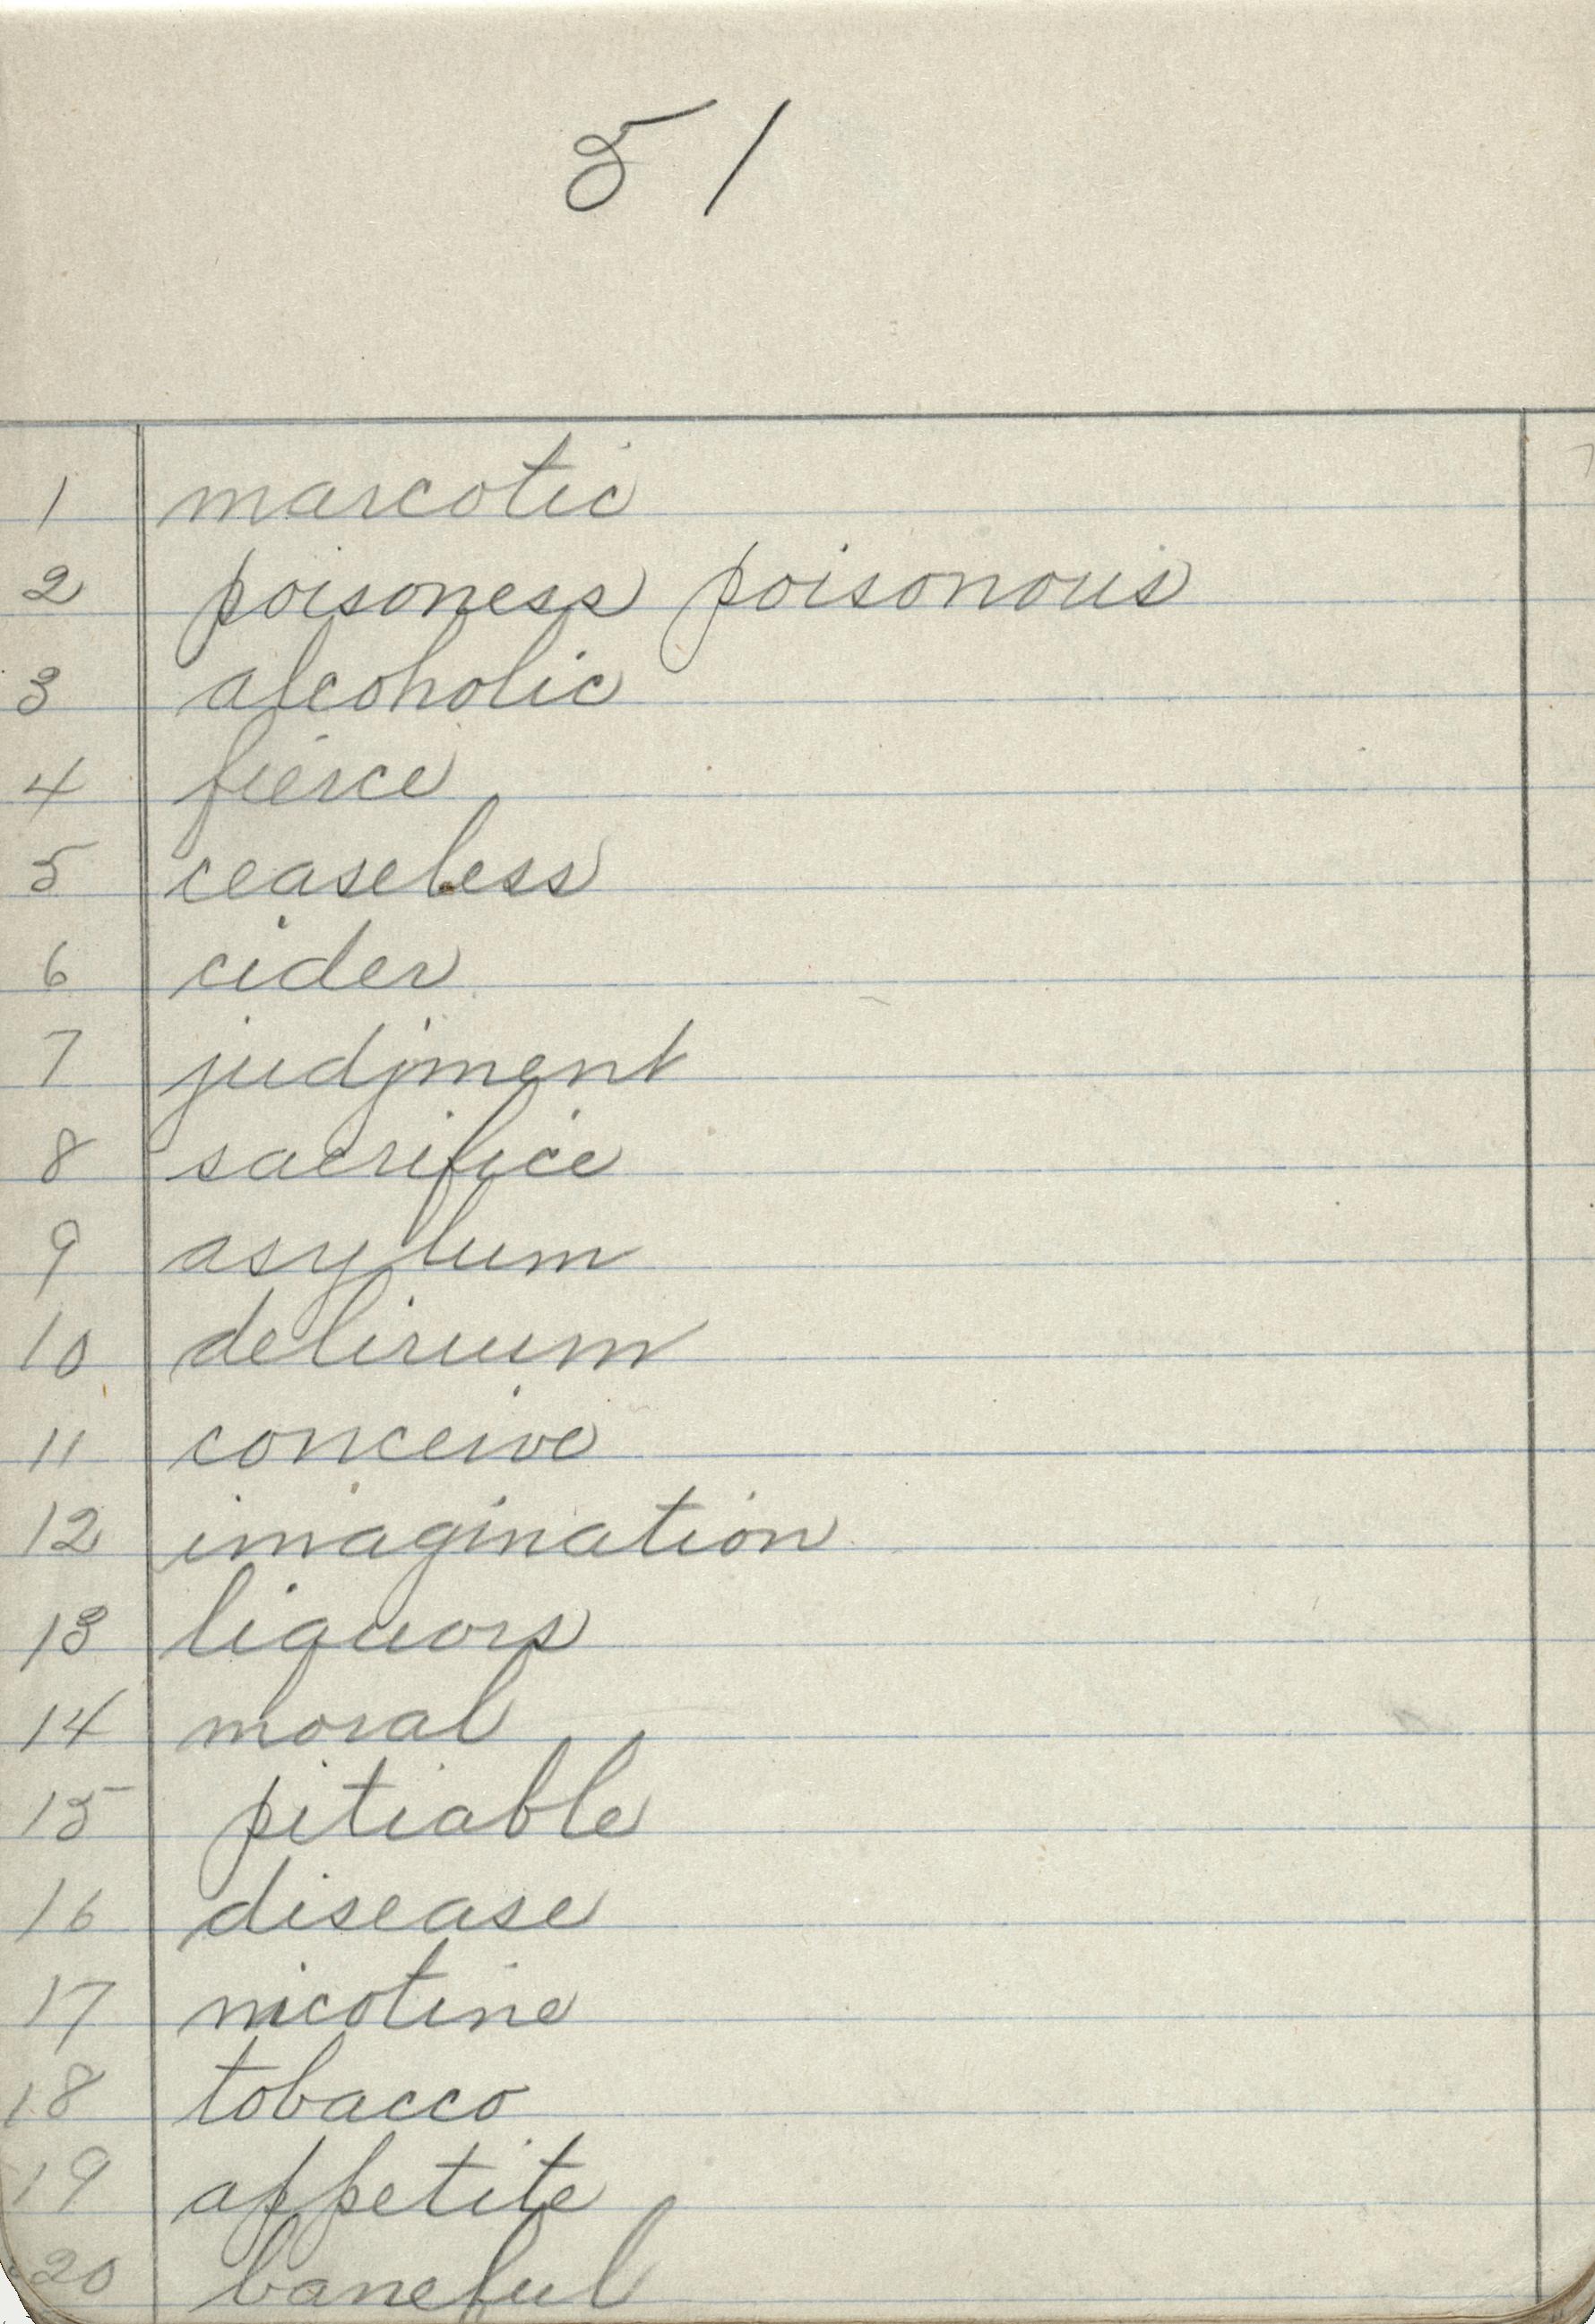 51
1 marcotic
2 poisoness poisonous
3 alcoholic
4 fierce
5 ceaseless
6 cider
7 judjment
8 sacrifice
9 asylum
10 delirium
11 conceive
12 imagination
13 liquors
14 moral
15 pitiable
16 disease
17 nicotine
18 tobacco
19 appetite
20 baneful